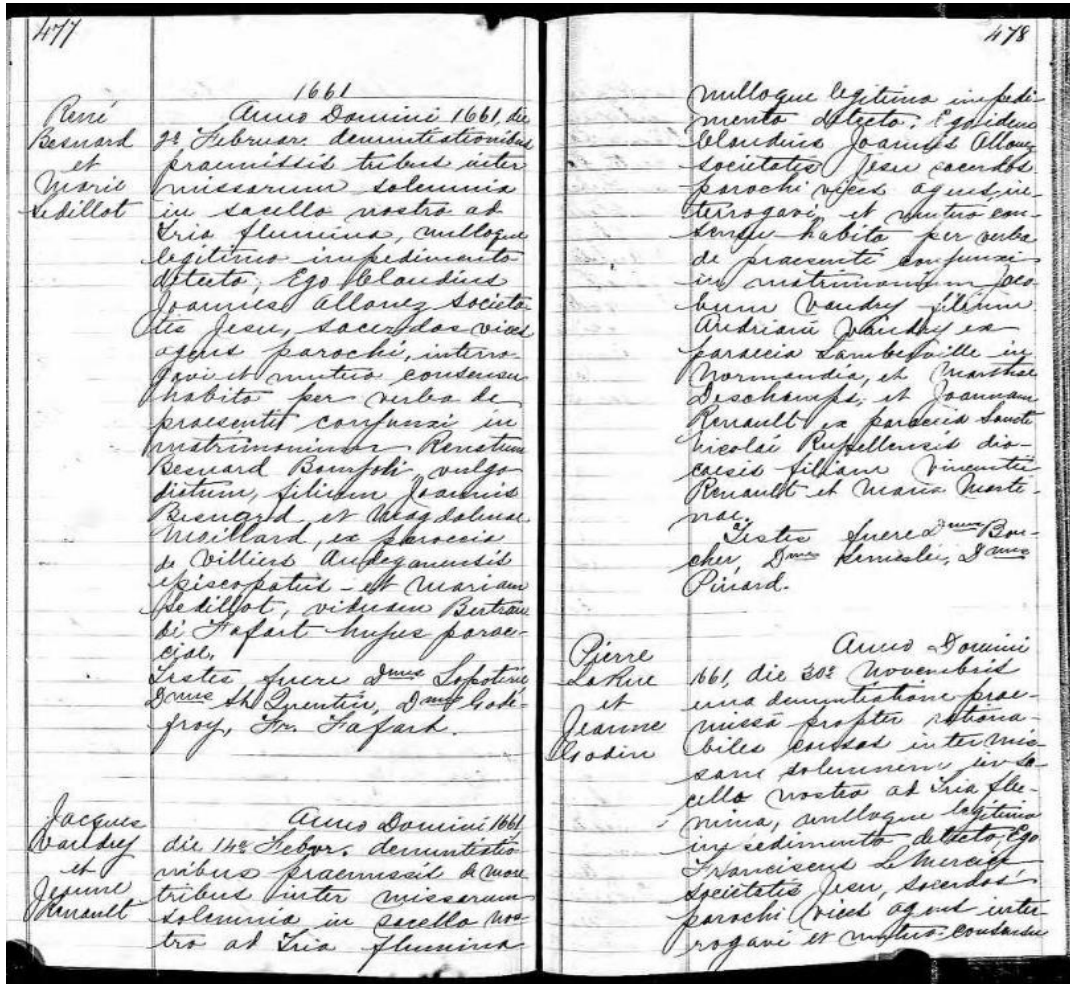 477
1661
René
Besnard
et
Marie
Sedillot
Anno Domini 1661, die
2ª, Februar. denuntiationibus
praemissis tribus inter
missarum solemnia
in sacello nostro ad
Tria flumina, nulloque
legitimo impedimento
detecto, Ego Claudius
Joannes Allouez Societa
tis Jesu, sacerdos vices
agens parochi, interro-
gavi et mutuo consensu
habito per verba de
praesenti conjunxi in
matrimonium Renatum
Besnard Bourjoli, vulgo
dictum, filium Joannis
Besnard, et Magdalenae
Moillard, ex paroecia
de Villiers Andeganensis
episcopatus - et Mariam
Sedillot, viduam Bertran
di Fafart hujus paroe-
ciae.
Testes fuere Dnus Lapoterie
Dnus St. Quentin, Dnus Gode-
froy, Fr. Fafart.
Jacques
Vaudry
et
Jeanne
Renault
Anno Domini 1661,
die 14ª Febvr. denuntiatio
nibus praemissis de more
tribus inter missarum
solemnia in sacello nos-
tro ad Tria flumina
478
nulloque legitimo impedi-
mento detecto. Ego idem
Claudius Joannes Allouez
societatis Jesu sacerdos
parochi vices agens, in-
terrogavi, et mutuo con-
sensu habito per verba
de praesenti conjunxi
in matrimonium Jaco-
bum Vaudry filium
Andriani Vaudry ex
paroecia Lamberville in
Normandia, et Marthae
Deschamps, et Joannam
Renault ex paroecia Sancti
Nicolai Rupellensis dio-
caesis filiam Vincentii
Renault et Maria Marti-
nae.
Testes fuere Dnus Bou-
cher, Dnus Lemeslé, Dnus
Pinard.
Pierre
LaRue
et
Jeanne
Godin
Anno Domini
1661, die 30ª Novembris
una denuntiatione prae-
missa propter rationa-
biles causas inter mis-
sam solemnem in sa-
cello nostro ad Tria flu-
mina, nulloque legitimo
impedimento detecto, Ego
Franciscus Le Mercier
societatis Jesu, sacerdos
parochi vices agens inter-
rogavi et mutuo consensu